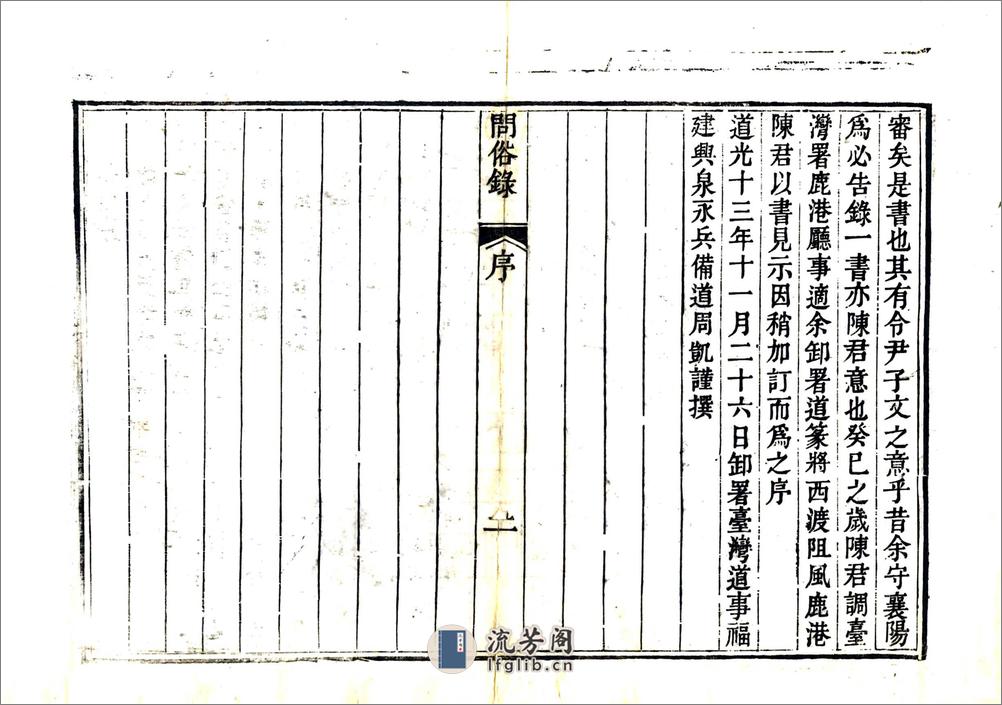 審矣是書也其有令尹子文之意乎昔余守襄陽
爲必告錄一書亦陳君意也癸巳之歲陳君調臺
灣署鹿港廳事適余卸署道篆將西渡阻風鹿港
陳君以書見示因稍加訂而爲之序
道光十三年十一月二十六日卸署臺灣道事福
建興泉永兵備道周凱謹撰
問俗錄
序
流芳阁
lfglib.cn